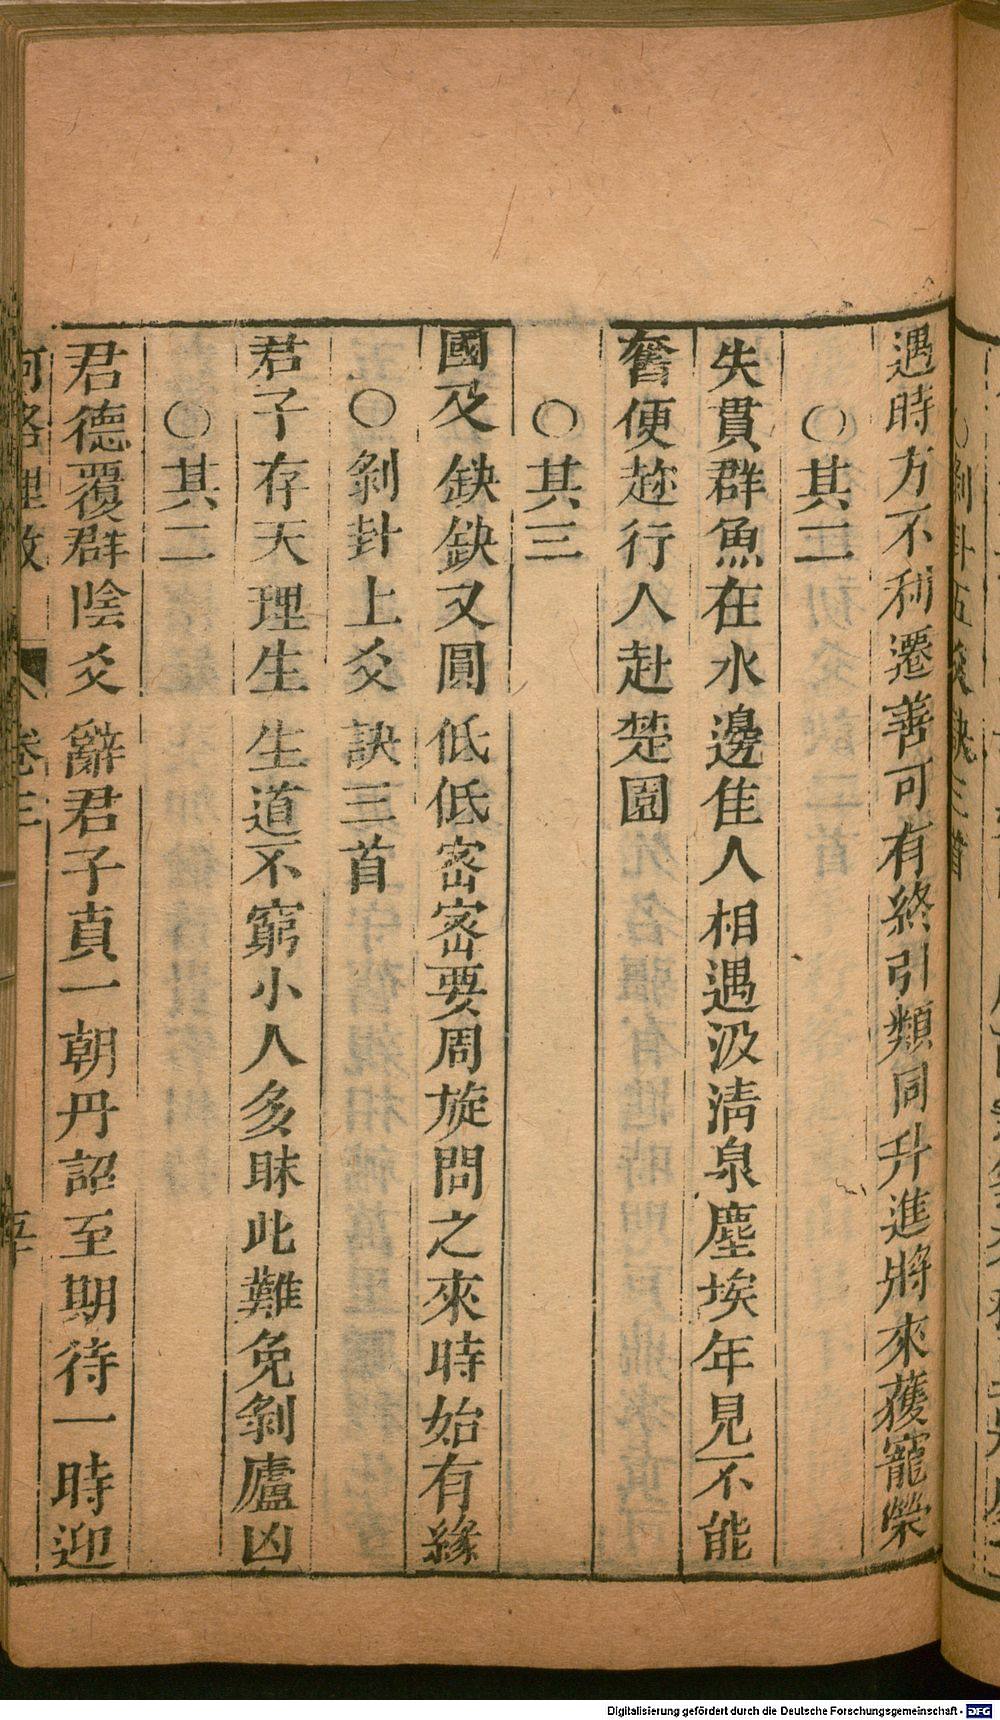 剝卦五爻訣三首
遇時方不利遷善可有終引類同升進將來獲寵榮
○其二
失貫群魚在水邊佳人相遇汲清泉塵埃年見不能
奮便趂行人赴楚園
○其三
國及缺缺又圓低低密密要周旋問之來時始有緣
○剝卦上爻訣三首
君子存天理生生道不窮小人多昧此難免剝廬凶
○其二
君德覆群陰爻辭君子真一朝丹詔至期待一時迎
河洛理數 卷三
Digitalisierung gefördert durch die Deutsche Forschungsgemeinschaft - DFG